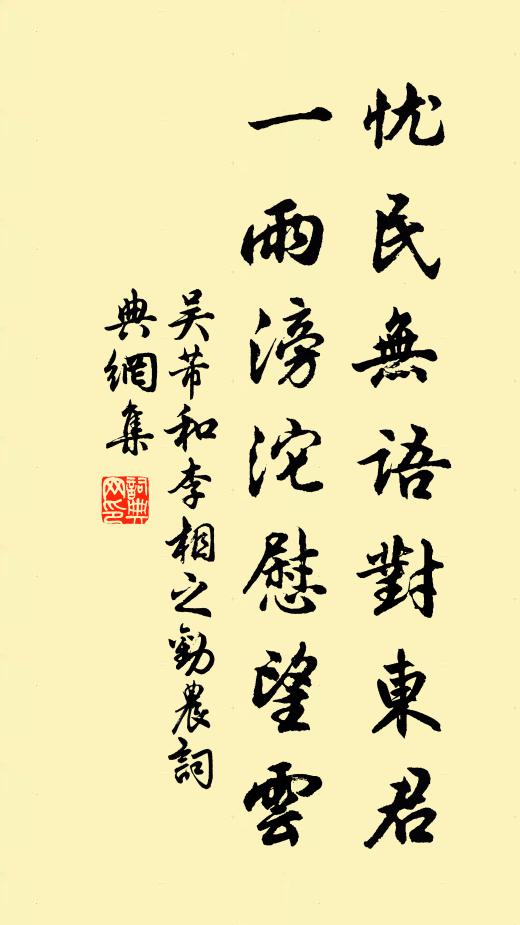 忧民無語對東君
一雨滂沱慰望雲
吴芾和李相之勸農詞
典網集
詞典網印